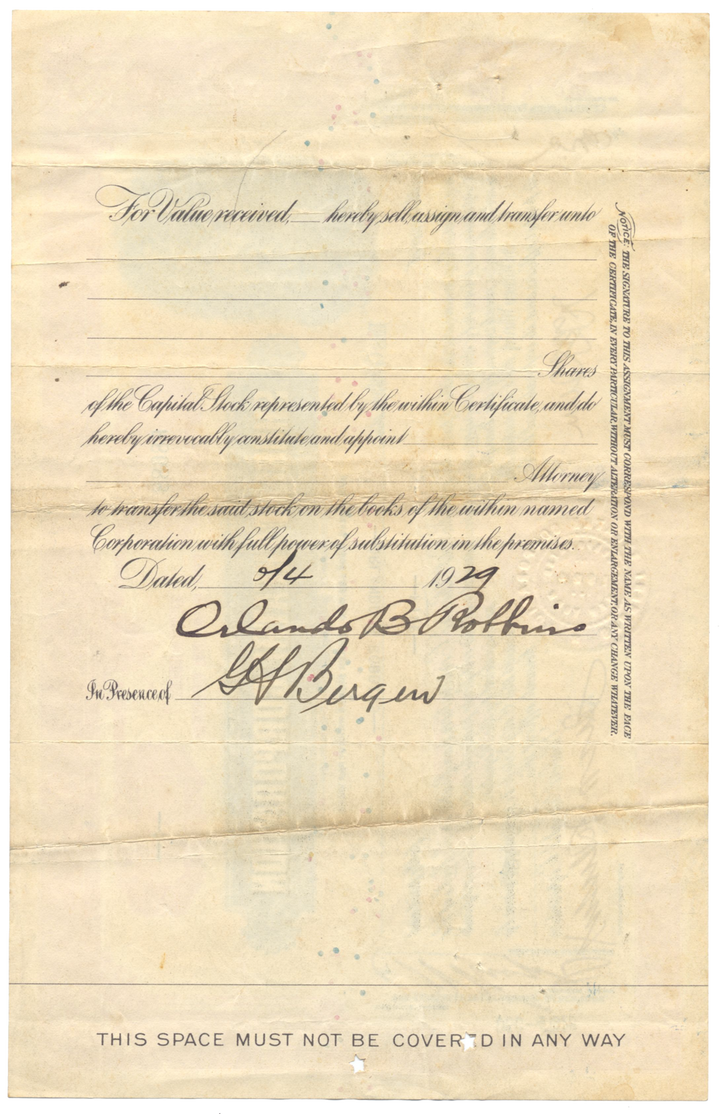 For Value received, hereby sell, assign and transfer unto
Shares
of the Capital Stock represented by the within Certificate, and do
hereby irrevocably constitute and appoint
Attorney
to transfer the said stock on the books of the within named
Corporation with full power of substitution in the premises.
Dated, 2/4 1929
Orlando B Robbins
In Presence of G H Bergen
NOTICE: THE SIGNATURE TO THIS ASSIGNMENT MUST CORRESPOND WITH THE NAME AS WRITTEN UPON THE FACE
OF THE CERTIFICATE, IN EVERY PARTICULAR, WITHOUT ALTERATION OR ENLARGEMENT OF ANY CHANGE WHATEVER.
THIS SPACE MUST NOT BE COVERED IN ANY WAY